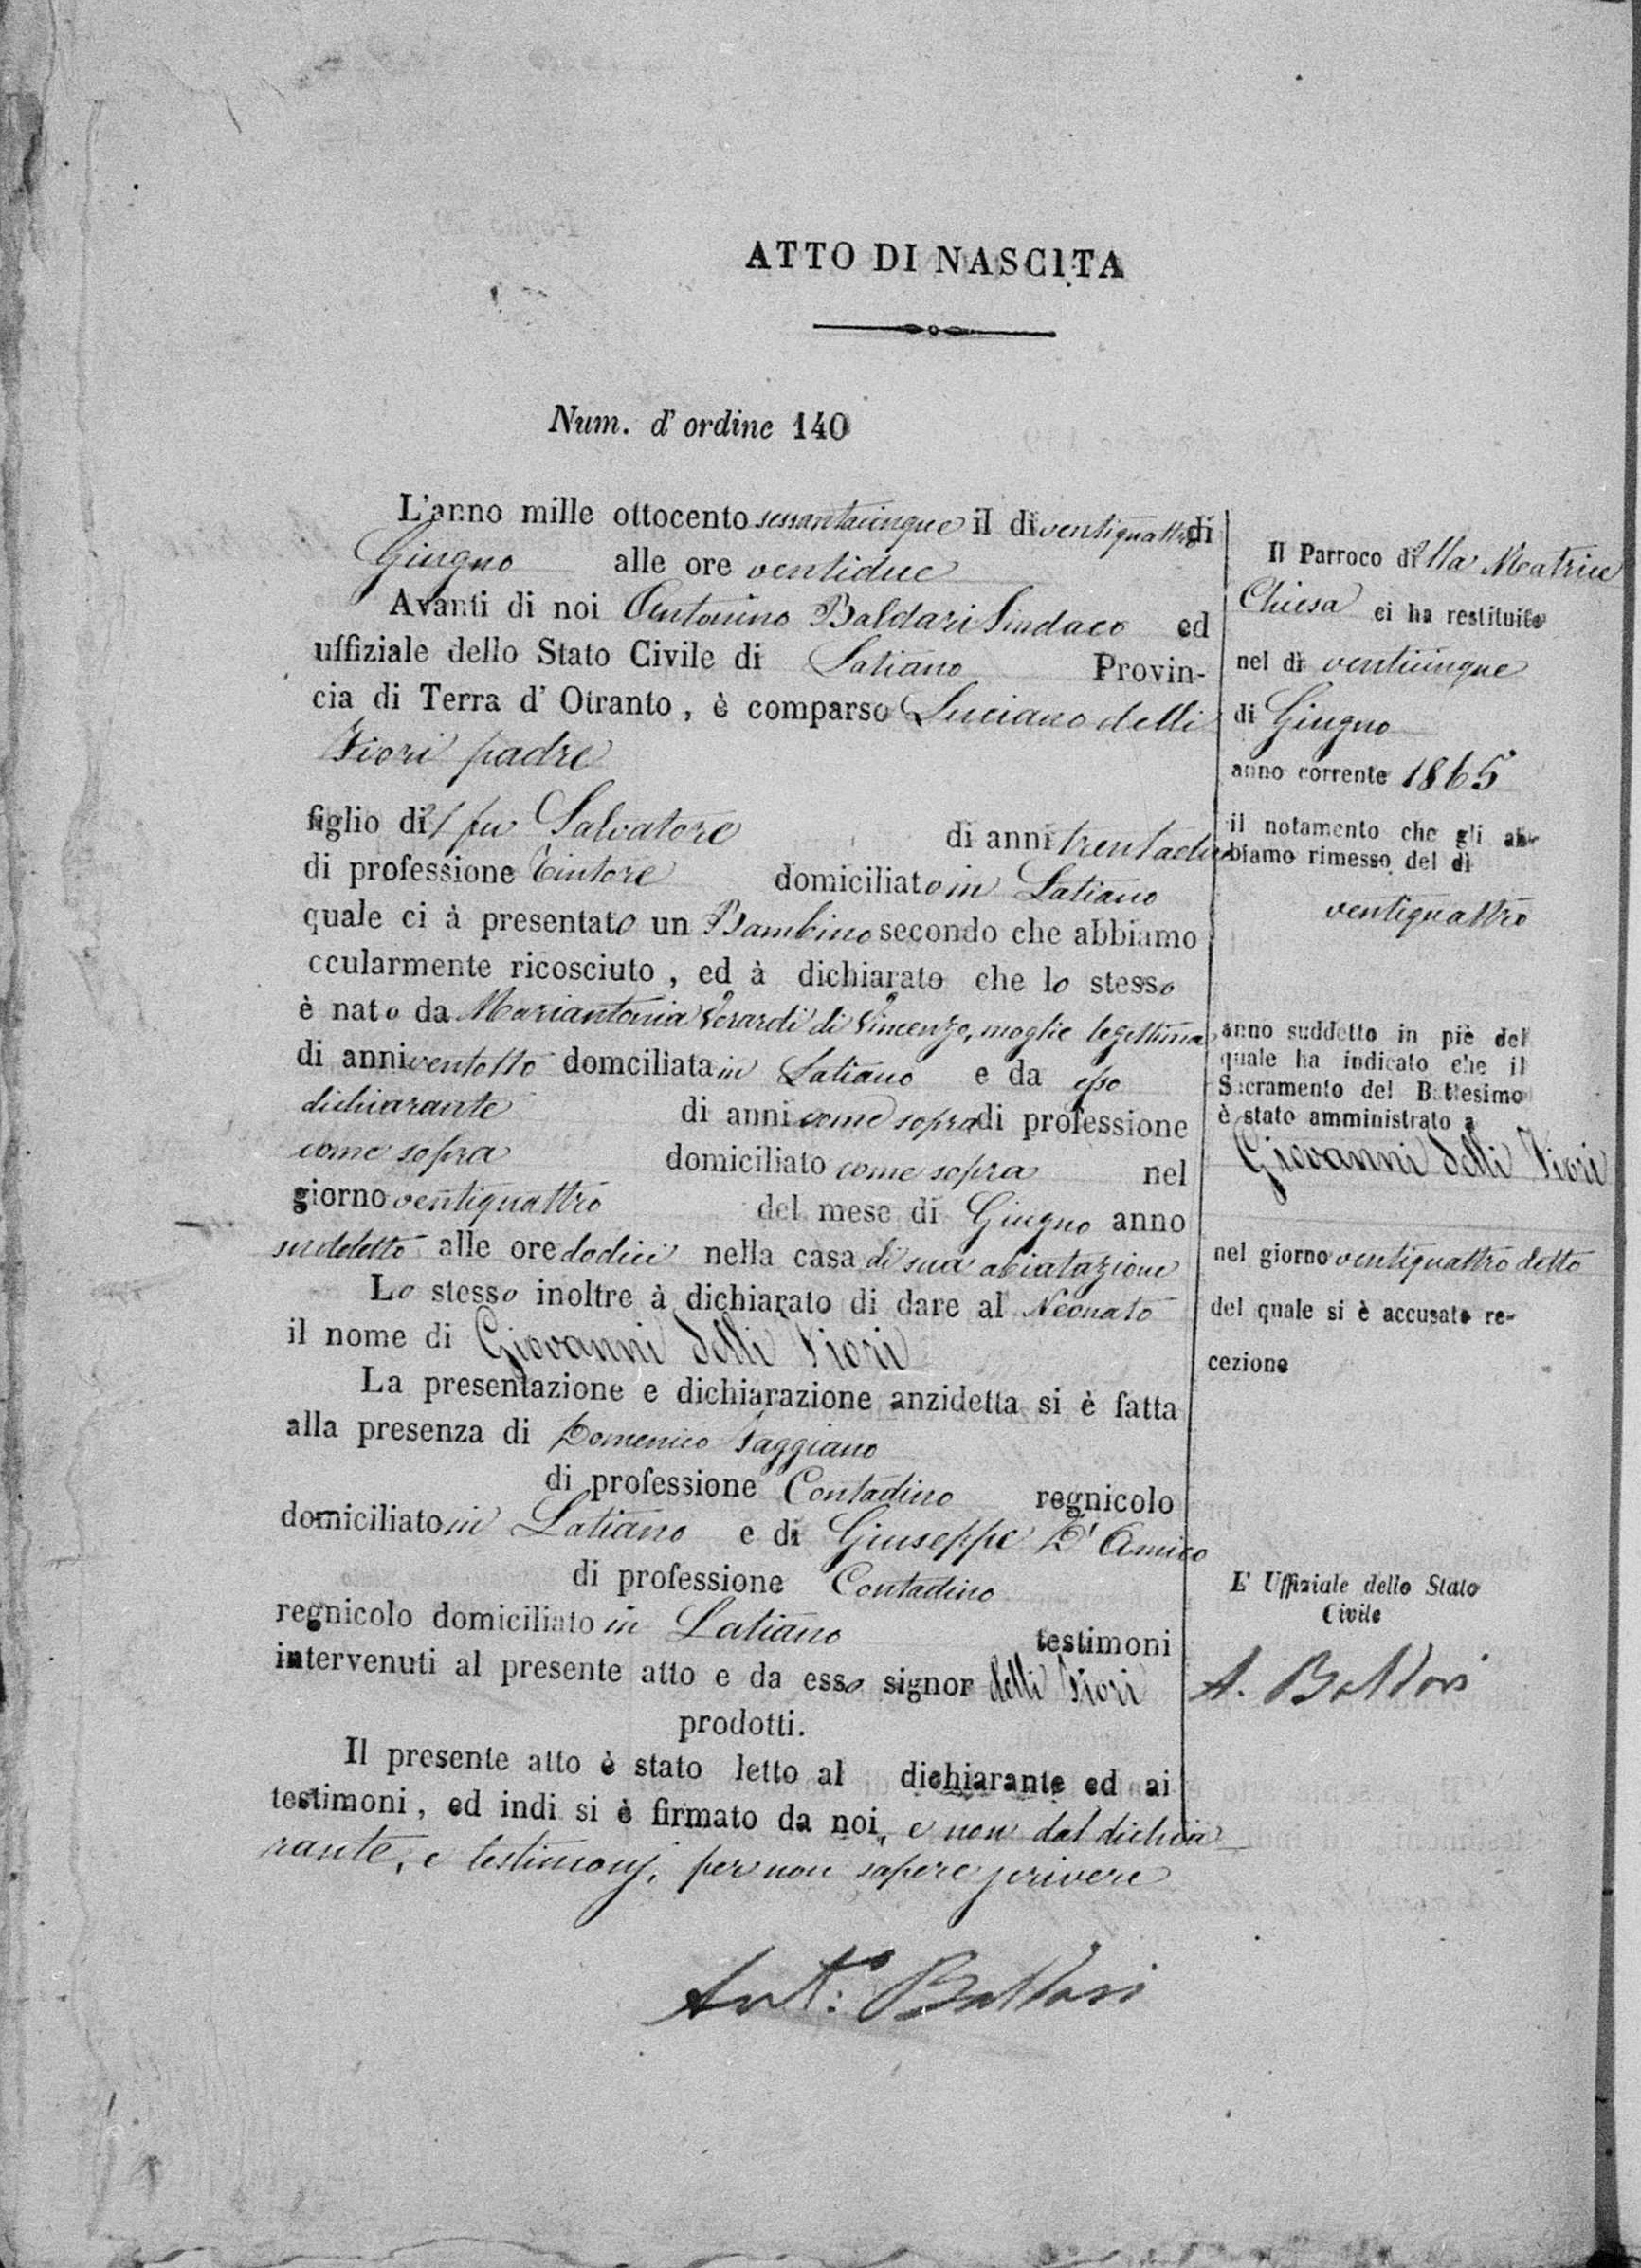 ATTO DI NASCITA
Num. d' ordine 140
L'anno mille ottocento sessantacinque il dì ventiquattro di
Giugno alle ore ventidue
Avanti di noi Antonino Baldari Sindaco ed
uffiziale dello Stato Civile di Latiano Provin-
cia di Terra d' Otranto, è comparso Luciano delli
Fiori padre
figlio del fu Salvatore di anni trentadue
di professione Tintore domiciliato in Latiano
quale ci à presentato un Bambino secondo che abbiamo
ccularmente ricosciuto, ed à dichiarato che lo stesso
è nato da Mariantonia Verardi di Vincenzo, moglie legittima
di anni ventotto domciliata in Latiano e da esso
dichiarante di anni come sopra di professione
come sopra domiciliato come sopra nel
giorno ventiquattro del mese di Giugno anno
suddetto alle ore dodici nella casa di sua abiatazione
Lo stesso inoltre à dichiarato di dare al Neonato
il nome di Giovanni delli Fiori
La presentazione e dichiarazione anzidetta si è fatta
alla presenza di Domenico Faggiano
di professione Contadino regnicolo
domiciliato in Latiano e di Giuseppe D' Amico
di professione Contadino
regnicolo domiciliato in Latiano testimoni
intervenuti al presente atto e da esso signor delli Fiori
prodotti.
Il presente atto è stato letto al dichiarante ed ai
testimoni, ed indi si è firmato da noi, e non dal dichia
rante, e testimonj, per non sapere scrivere
Ant.o Baldari
Il Parroco della Matrice
Chiesa ci ha restituito
nel dì venticinque
di Giugno
anno corrente 1865
il notamento che gli ab-
biamo rimesso del dì
ventiquattro
anno suddetto in piè del
quale ha indicato che il
Sacramento del Battesimo
è stato amministrato a
Giovanni delli Fiori
nel giorno ventiquattro detto
del quale si è accusato re-
cezione
L' Uffiziale dello Stato
Civile
A. Baldari